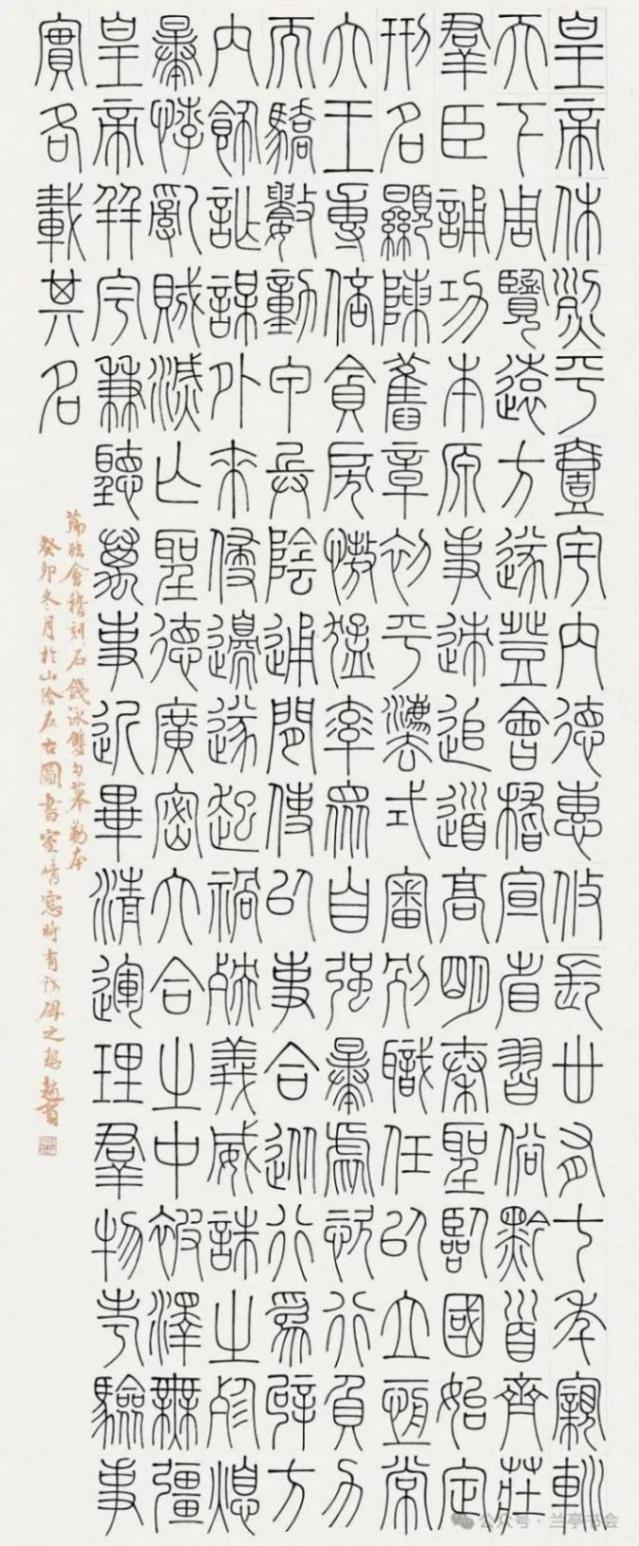 皇帝休烈平壹宇內德惠攸長丗有七年親巡
天下周覽遠方遂登會稽宣省習俗黔首齊莊
羣臣誦功本原事迹追道高明秦聖臨國始定
刑名顯陳舊章初平灋式審別職任以立恆常
六王專倍貪戾慠猛率眾自強暴虐恣行負力
而驕數動甲兵陰通間使以事合從行為辟方
內飾詐謀外來侵邊遂起禍殃義威誅之殄熄
暴悖亂賊滅亡聖德廣密六合之中被澤無疆
皇帝并宇兼聽萬事近畢清運理羣物考驗事
實各載其名
節臨會稽刻石錢泳雙勾摹勒本
癸卯冬月於山陰左古圖書室晴窗時有訪碑之想
公众号·兰亭书会